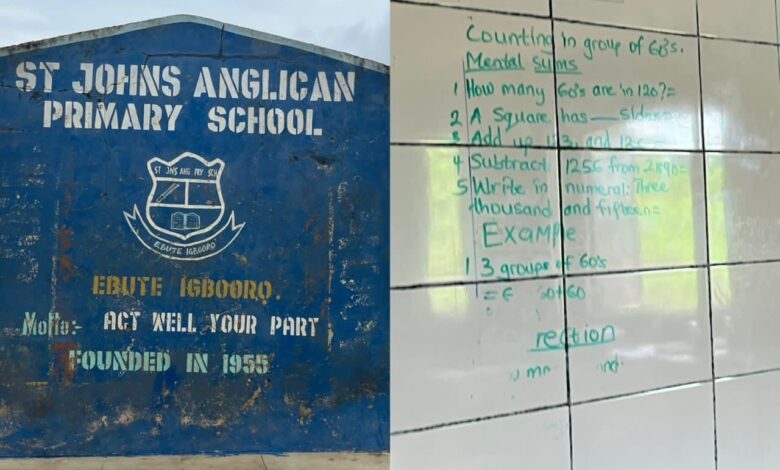 ST JOHNS ANGLICAN
PRIMARY SCHOOL
ST JNS ANG PRY SCH
EBUTE IGBOORO
EBUTE IGBOORO.
Motto:- ACT WELL YOUR PART
FOUNDED IN 1955
Counting in group of 60's.
Mental sums
1 How many 60's are in 120?=
2 A square has __ sides
3 Add up 3, and
4 Subtract 1256 from 2890=
5 Write in numeral: Three
thousand and fifteen=
Example
1 3 groups of 60's
= 60
rection